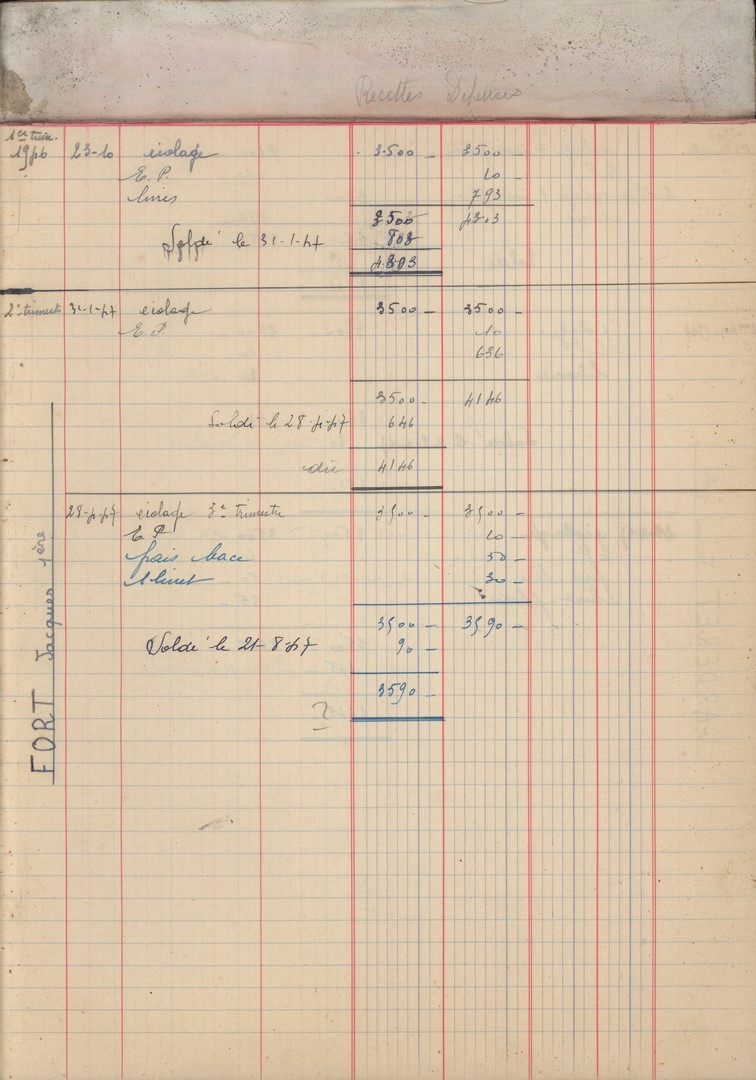 Recettes Dépenses
1er trim.
1946 23-10 écolage 3.500 - 3500 -
E. P. 10 -
livres 793
3500 4303
803
Soldé le 31-1-47
4303
2e trimest 31-1-47 écolage 3500 - 3500 -
E. P. 10
636
3500 - 4146
Soldé le 28-4-47 646
dû 4146
28-4-47 écolage 3e trimestre 3500 - 3500 -
E P 10 -
frais bacc 50 -
1 livret 30 -
3500 - 3590 -
Soldé le 21-8-47 90 -
3590 -
?
FORT Jacques 1ère